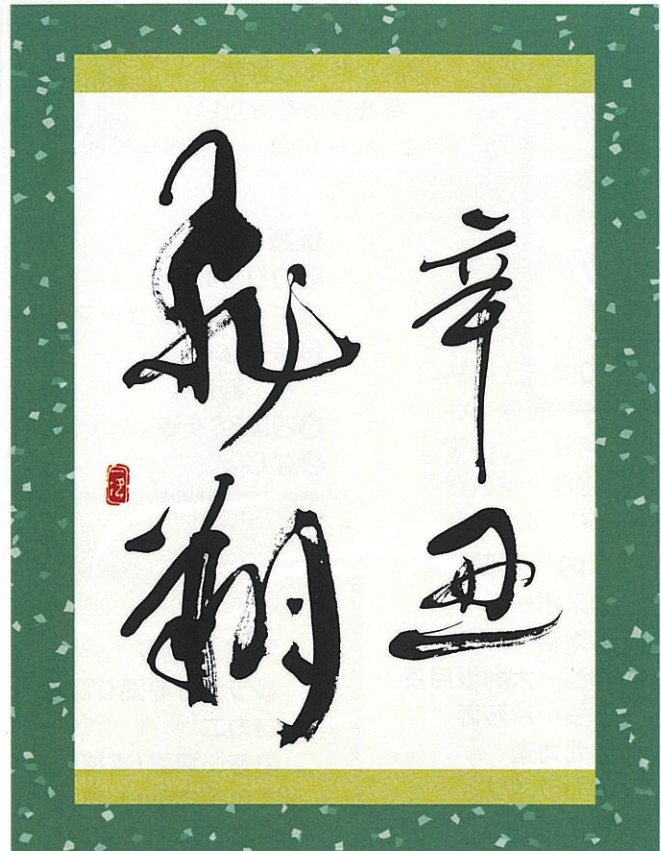 辛丑
飛翔